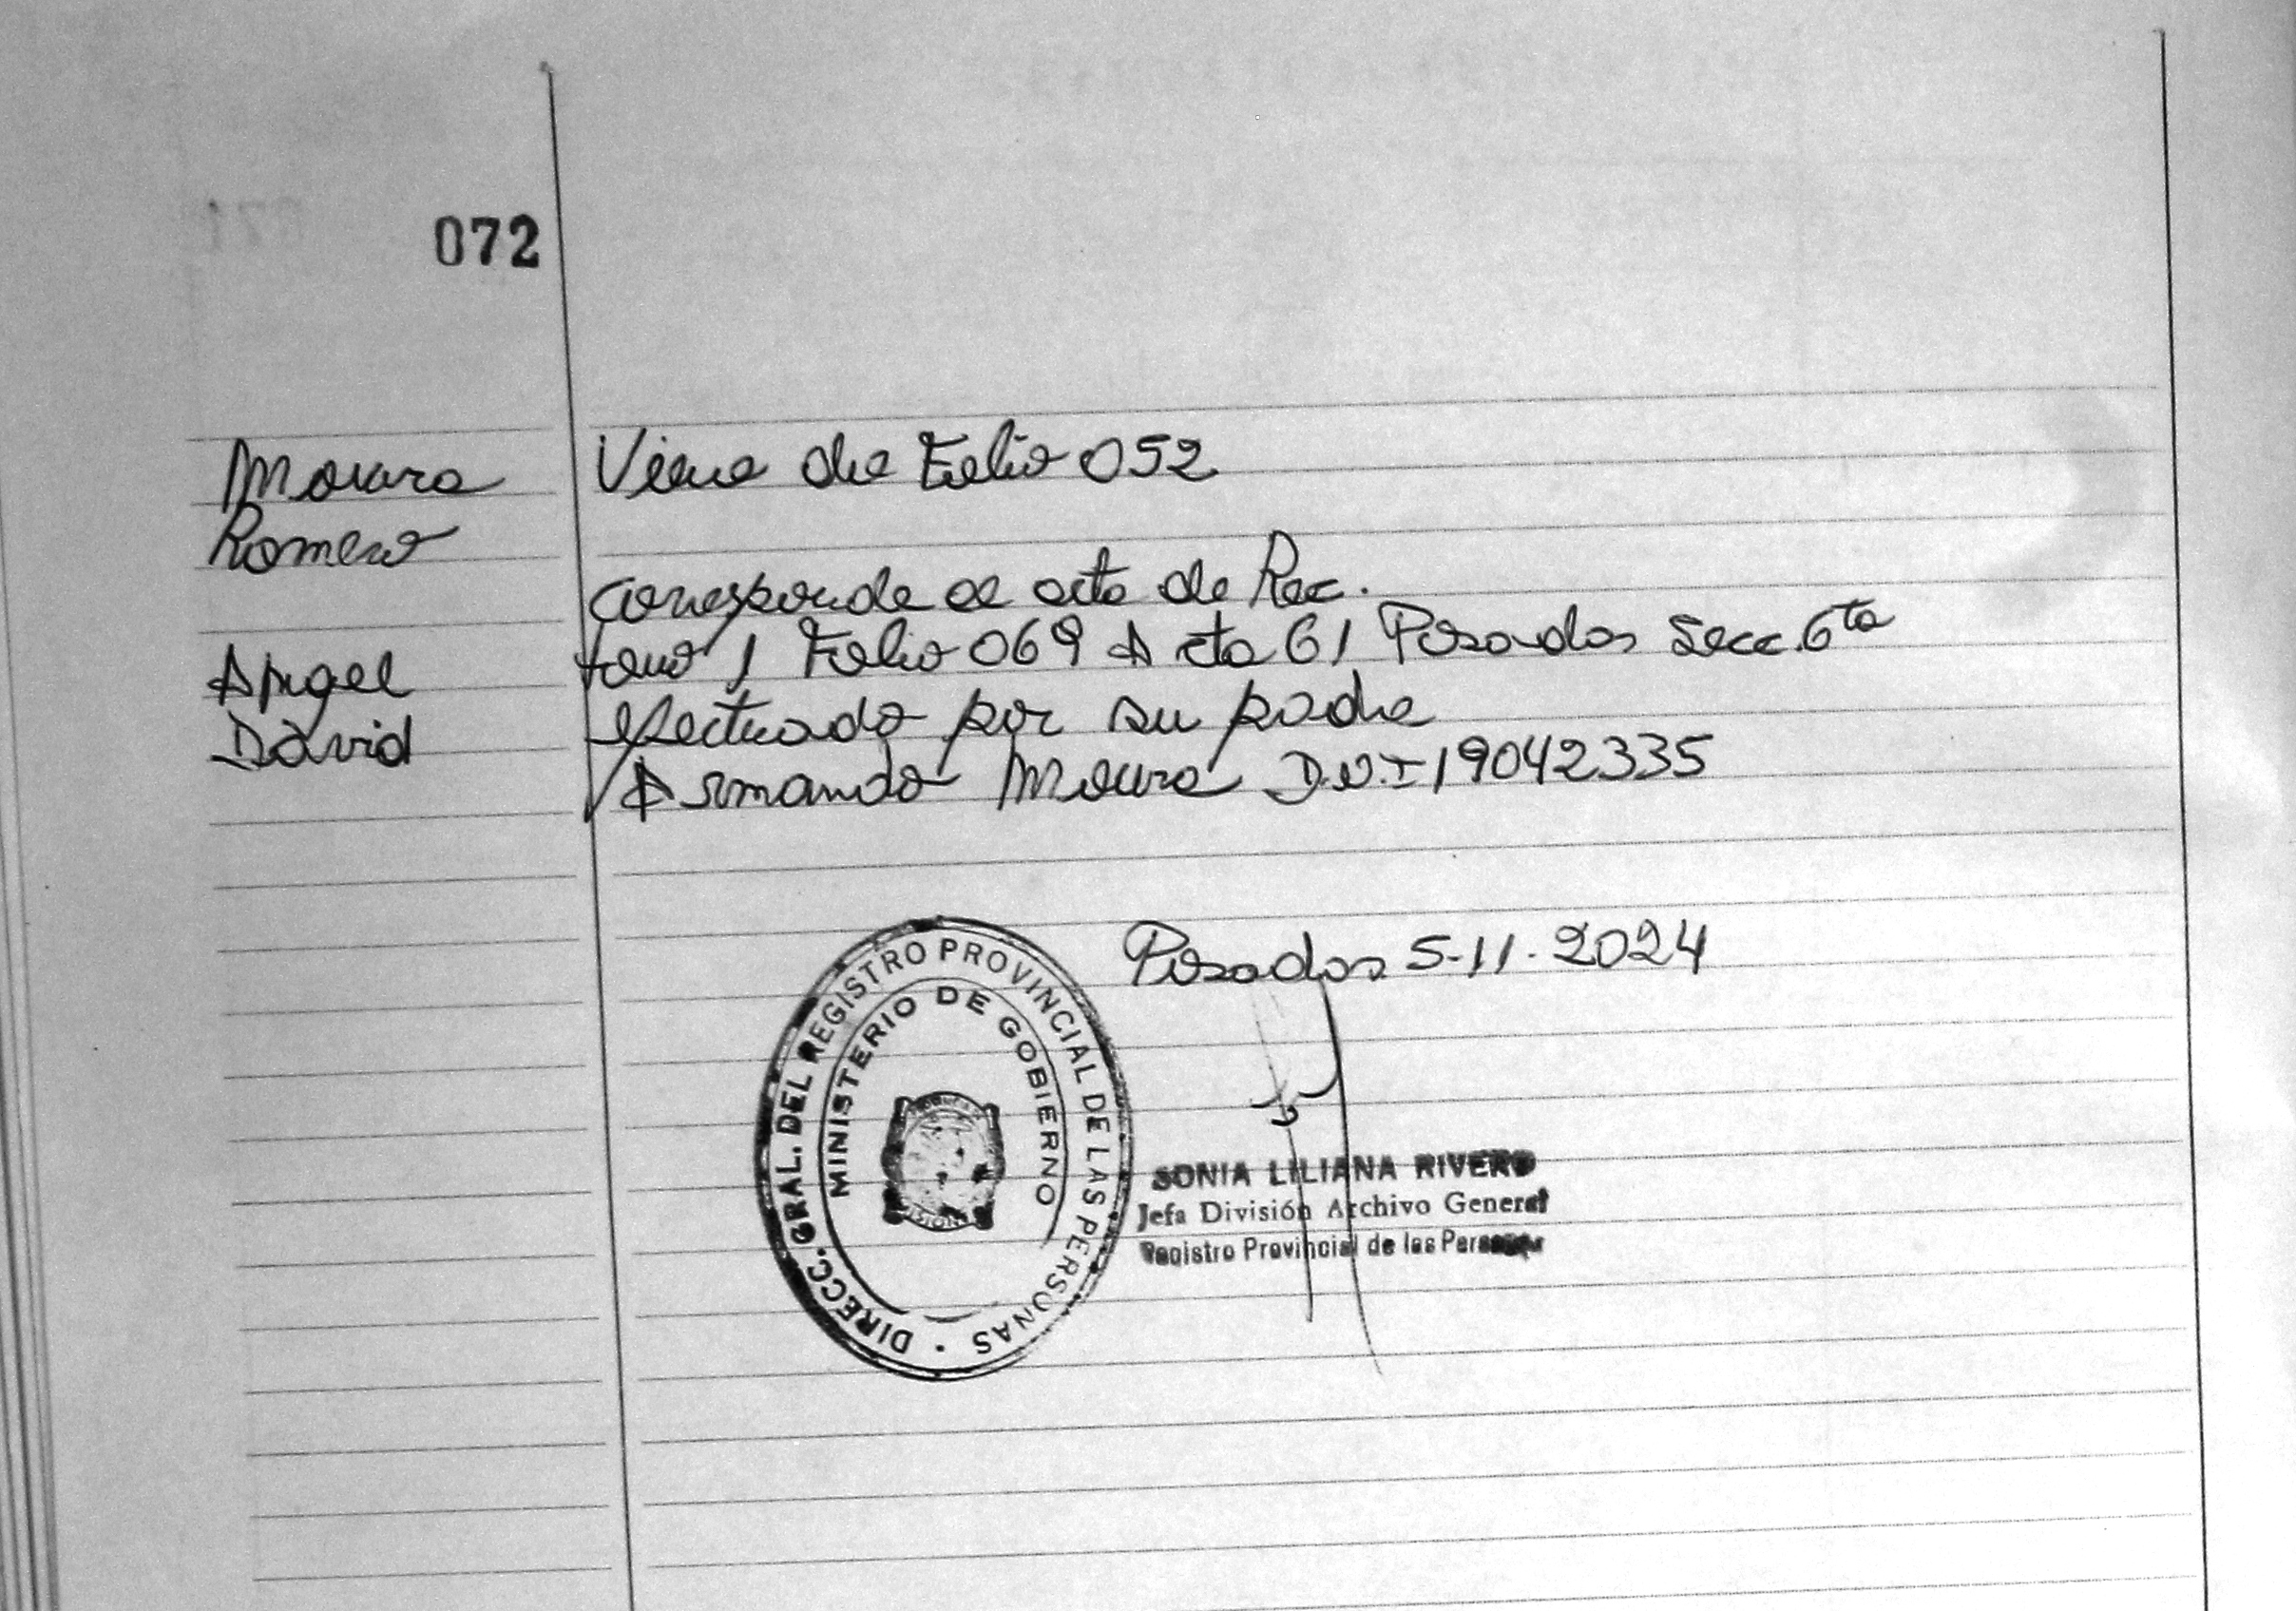 072
Moura
Romero
Angel
David
Viene de Folio 052
Corresponde al acta de Rec.
tomo 1 Folio 069 Acta 61 Posadas Secc. 6ta
efectuado por su padre
Armando Moura D.N.I 19042335
Posadas 5-11-2024
DIRECC. GRAL. DEL REGISTRO PROVINCIAL DE LAS PERSONAS
MINISTERIO DE GOBIERNO
SONIA LILIANA RIVERO
Jefa División Archivo General
Registro Provincial de las Personas